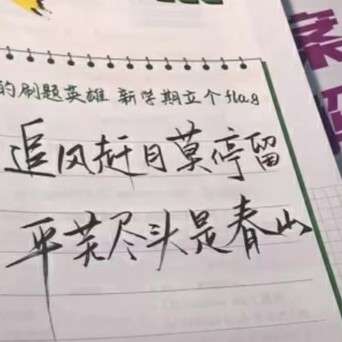 的刷题英雄 新学期立个flag
追风赶月莫停留
平芜尽头是春山